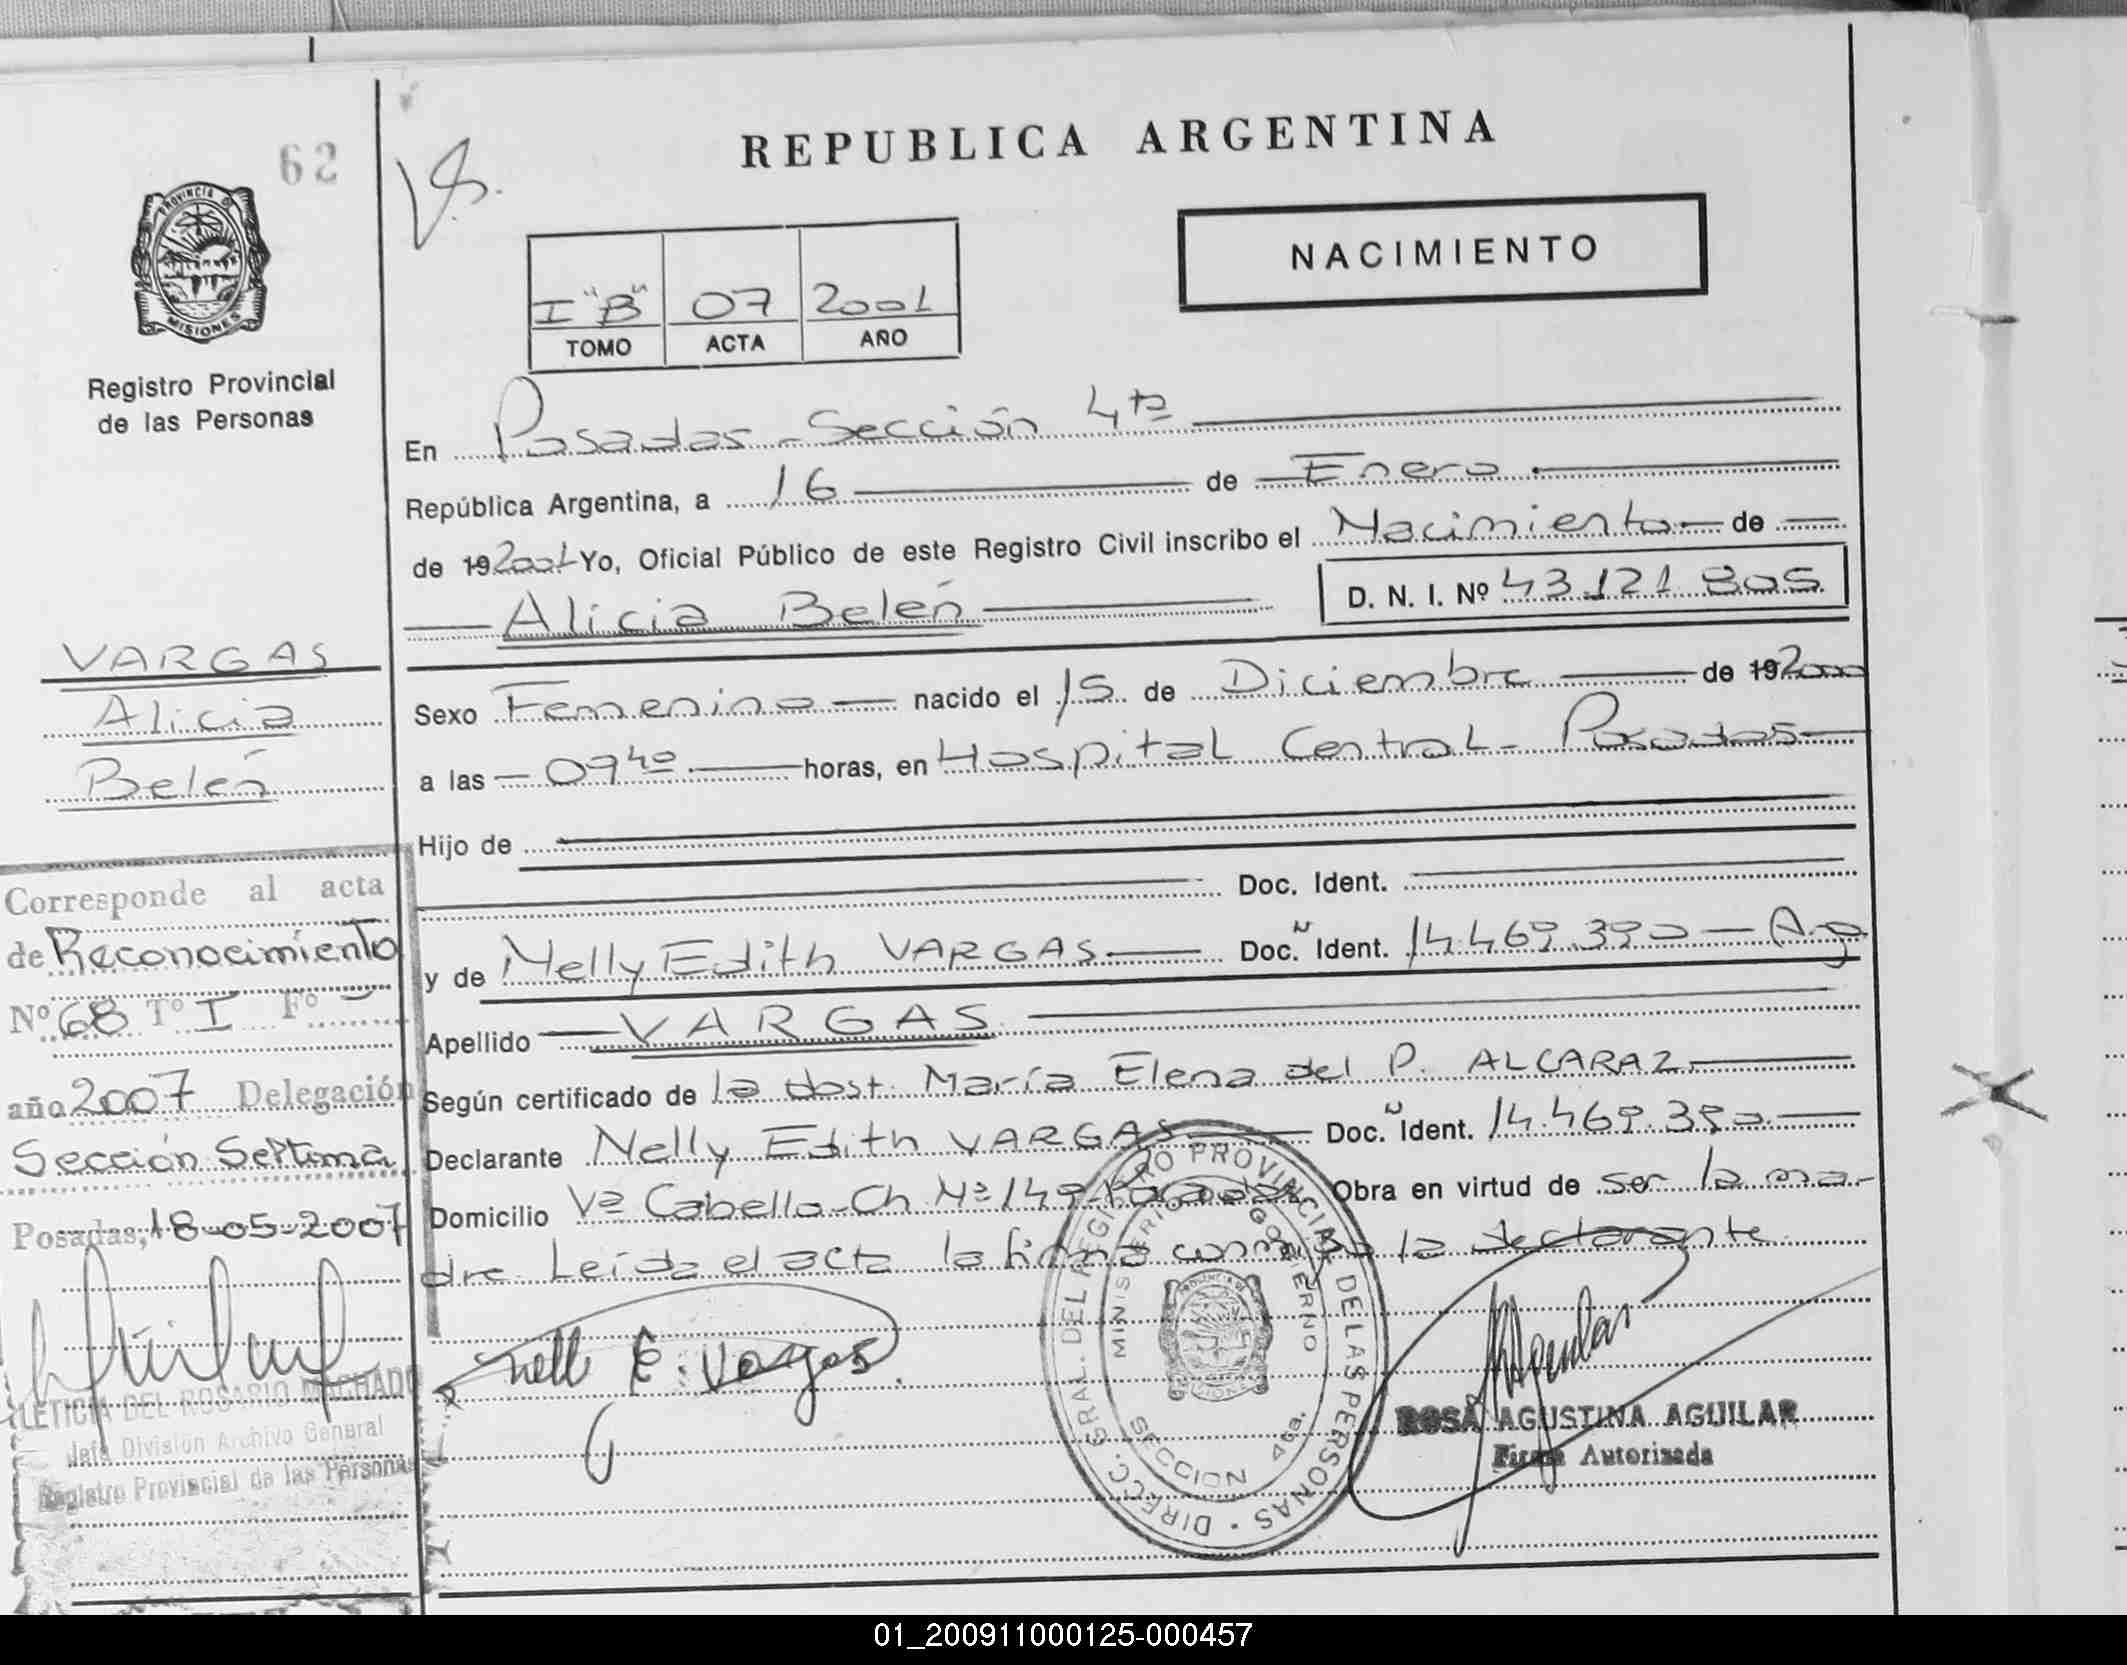 62
PROVINCIA DE
MISIONES
Registro Provincial
de las Personas
VARGAS
Alicia
Belén
Corresponde al acta
de Reconocimiento
Nº 68 Tº I Fº -
año 2007 Delegación
Sección Septima
Posadas, 18-05-2007
LETICIA DEL ROSARIO MACHADO
Jefe División Archivo General
Registro Provincial de las Personas
REPUBLICA ARGENTINA
NACIMIENTO
I "B" 07 2001
TOMO ACTA AÑO
En Posadas - Sección 4ta
República Argentina, a 16 de Enero
de 192001 Yo, Oficial Público de este Registro Civil inscribo el Nacimiento de
Alicia Belén D. N. I. Nº 43.121.805
Sexo Femenino nacido el 15 de Diciembre de 192000
a las 09 40 horas, en Hospital Central - Posadas
Hijo de
Doc. Ident.
y de Nelly Edith VARGAS Doc. Ñ Ident. 14.469.390 - Ag
Apellido VARGAS
Según certificado de la obst. María Elena del P. ALCARAZ
Declarante Nelly Edith VARGAS Doc. Ñ Ident. 14.469.390
Domicilio Vª Cabello - Ch Nº 149 - Posadas Obra en virtud de ser la ma-
dre. Leída el acta la firma conmigo la declarante
Nell E. Vargas
DIRECC. GRAL. DEL REGISTRO PROVINCIAL DE LAS PERSONAS
MINISTERIO GOBIERNO
SECCION 4ta.
ROSA AGUSTINA AGUILAR
Firma Autorizada
01_200911000125-000457